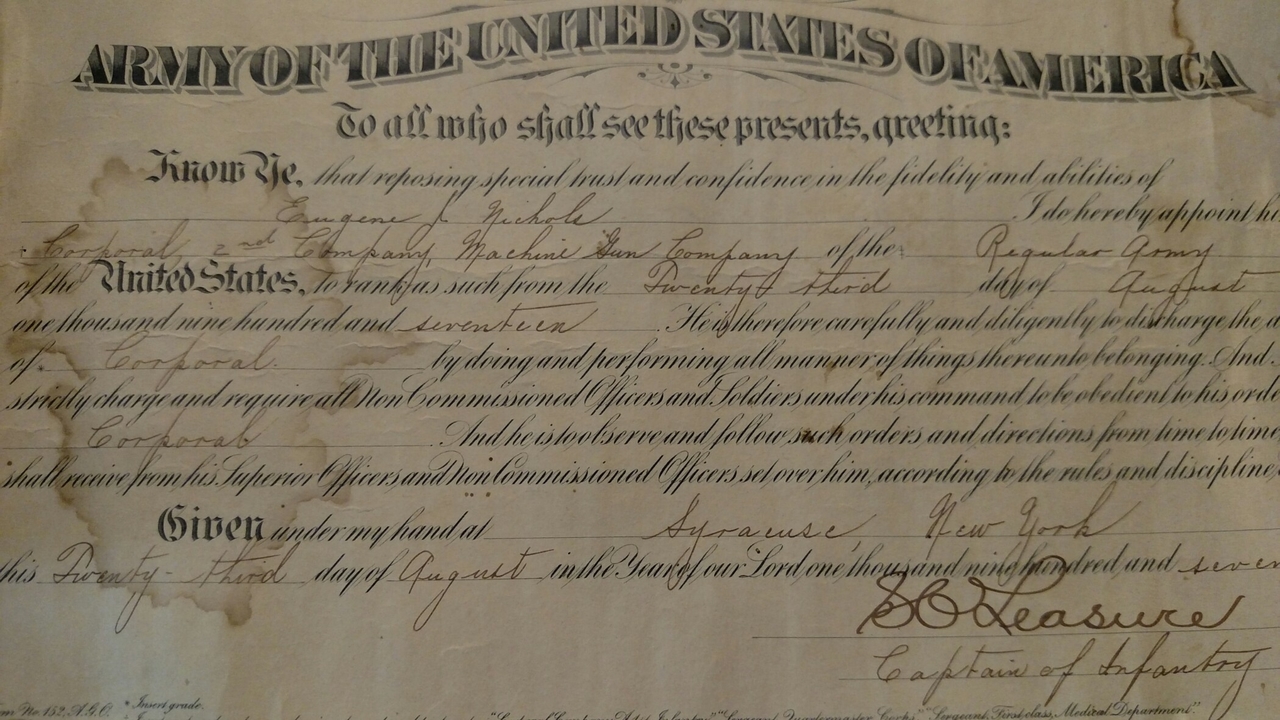 ARMY OF THE UNITED STATES OF AMERICA
To all who shall see these presents, greeting:
Know Ye, that reposing special trust and confidence in the fidelity and abilities of
Eugene J. Nichols I do hereby appoint h
Corporal, 2nd Company, Machine Gun Company of the Regular Army
of the United States, to rank as such from the Twenty third day of August
one thousand nine hundred and seventeen. He is therefore carefully and diligently to discharge the d
of Corporal. by doing and performing all manner of things thereunto belonging. And
strictly charge and require all Non Commissioned Officers and Soldiers under his command to be obedient to his orde
Corporal. And he is to observe and follow such orders and directions from time to time
shall receive from his Superior Officers and Non Commissioned Officers set over him, according to the rules and discipline
Given under my hand at Syracuse, New York
this Twenty-third day of August in the Year of our Lord one thousand nine hundred and seven
Leasure
Captain of Infantry
m No. 152, A.G.O. *Insert grade.
"Sergeant, Quartermaster Corps" "Sergeant, First class, Medical Department"